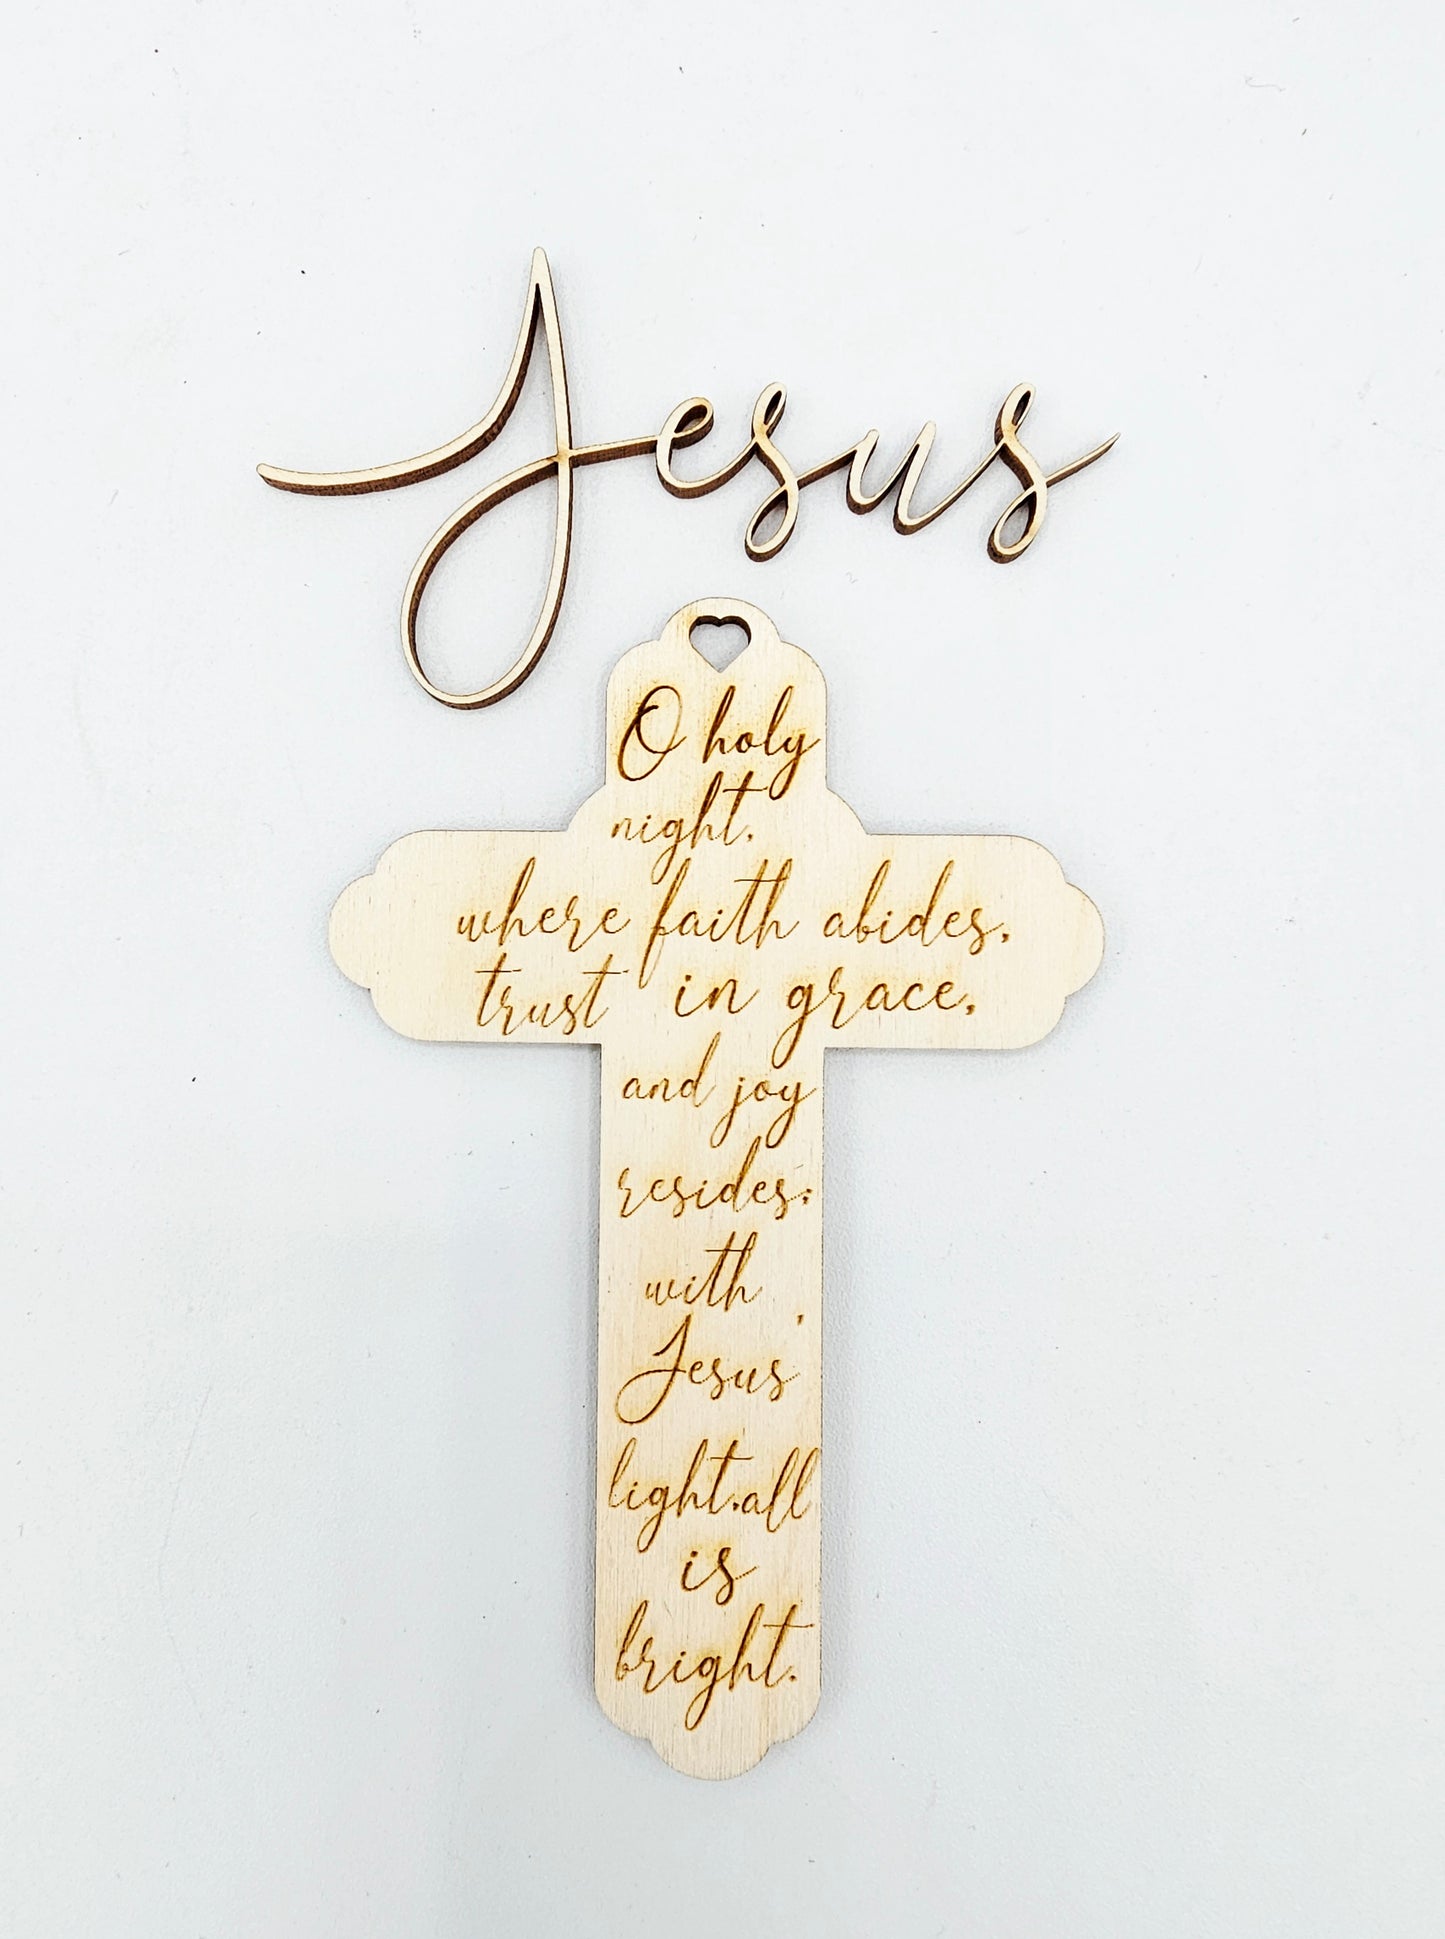 Jesus
O holy
night.
where faith abides,
trust in grace,
and joy
resides;
with
Jesus'
light,all
is
bright.